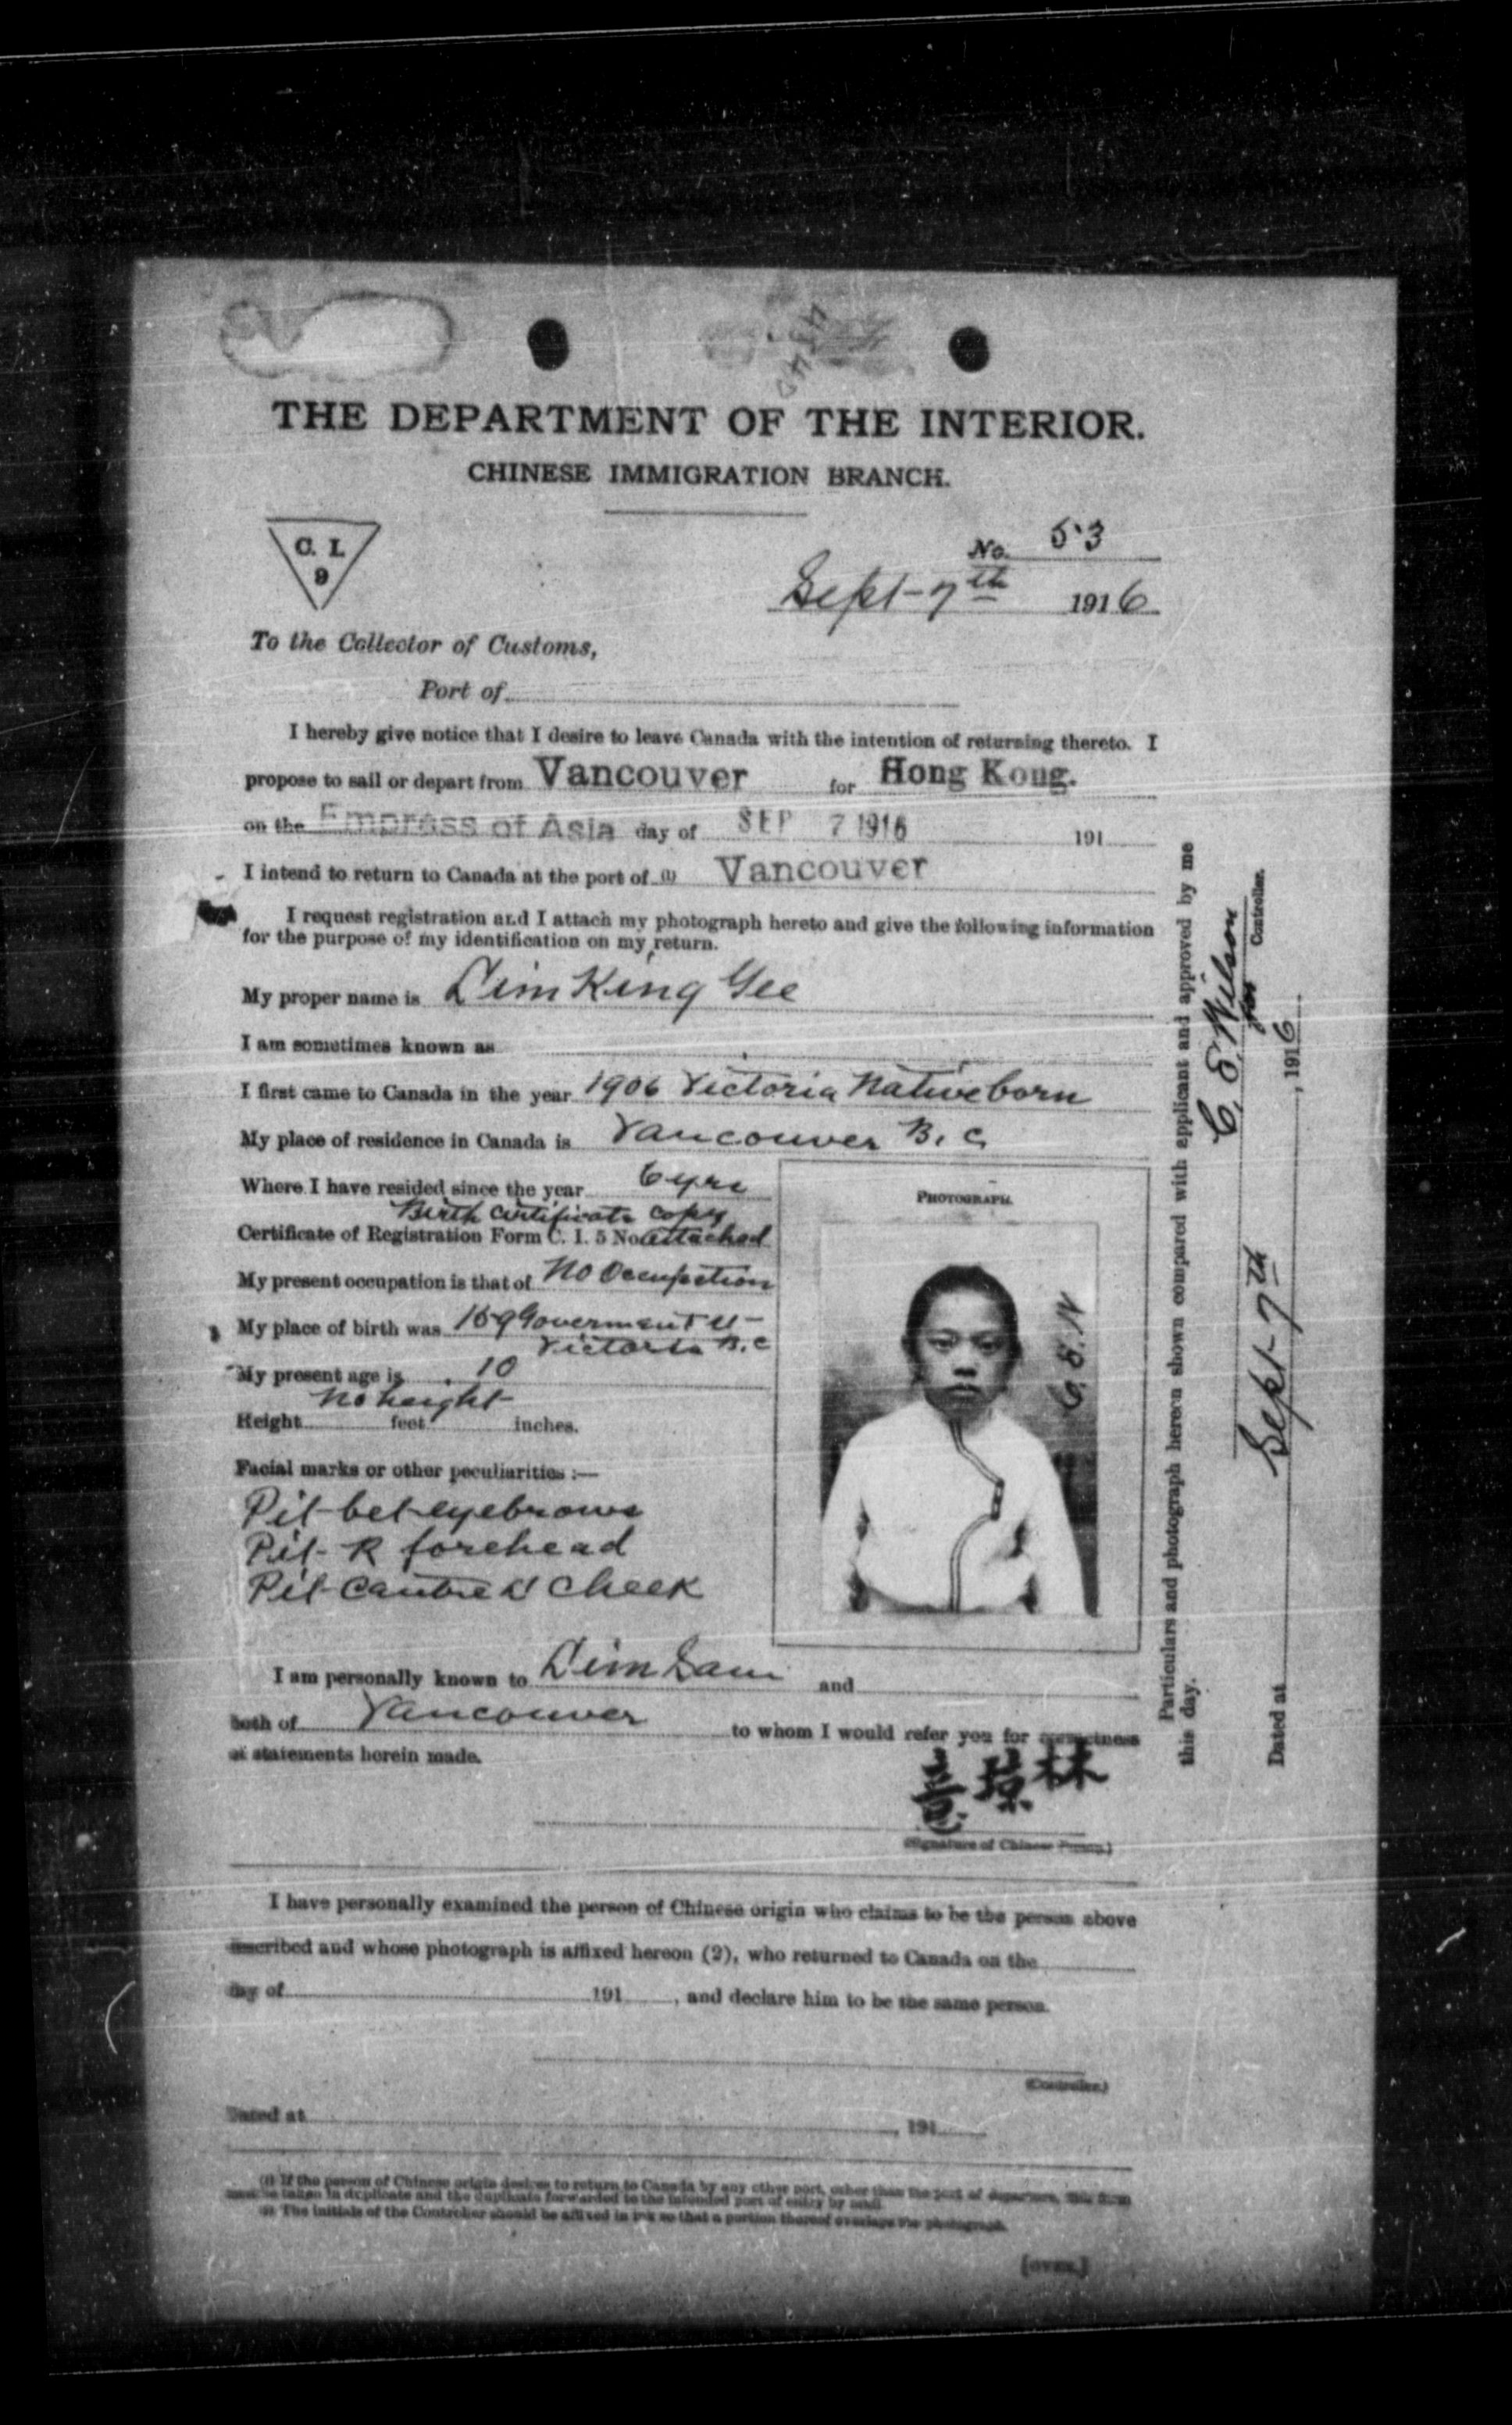 THE DEPARTMENT OF THE INTERIOR.
CHINESE IMMIGRATION BRANCH.
C. I.
9
No. 53
Sept-7th 1916
To the Collector of Customs,
Port of
I hereby give notice that I desire to leave Canada with the intention of returning thereto. I
propose to sail or depart from Vancouver for Hong Kong.
on the Empress of Asia day of SEP 7 1916 191
I intend to return to Canada at the port of (1) Vancouver
I request registration and I attach my photograph hereto and give the following information
for the purpose of my identification on my return.
My proper name is Lim King Yee
I am sometimes known as
I first came to Canada in the year 1906 Victoria Native born
My place of residence in Canada is Vancouver B. C
Where I have resided since the year 6 yrs
Birth Certificate copy
Certificate of Registration Form C. I. 5 No attached
My present occupation is that of No Occupation
My place of birth was 159 Goverment St
Victoria B.C
My present age is 10
No height
Height feet inches.
Facial marks or other peculiarities :—
Pit bet eyebrows
Pit- R forehead
Pit cheek
PHOTOGRAPH.
C. E. W
I am personally known to Lim Sam and
both of Vancouver to whom I would refer you for correctness
of statements herein made.
林 意
(Signature of Chinese Person.)
I have personally examined the person of Chinese origin who claims to be the person above
described and whose photograph is affixed hereon (2), who returned to Canada on the
day of 191 , and declare him to be the same person.
(Controller.)
Dated at , 191
(1) If the person of Chinese origin desires to return to Canada by any other port, other than the port of departure, this form
must be taken in duplicate and the duplicate forwarded to the intended port of entry by mail.
(2) The initials of the Controller should be affixed in ink so that a portion thereof overlaps the photograph.
[OVER.]
Particulars and photograph hereon shown compared with applicant and approved by me
this day.
C. E. Wilson
for Controller.
Dated at Sept-7th , 1916